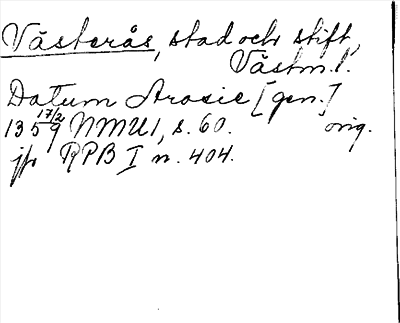 Västerås, stad och stift,
Västm.l.
Datum Arosie [gen.]
1359 17/2 NMU1, s. 60. orig.
jfr RPB I n. 404.